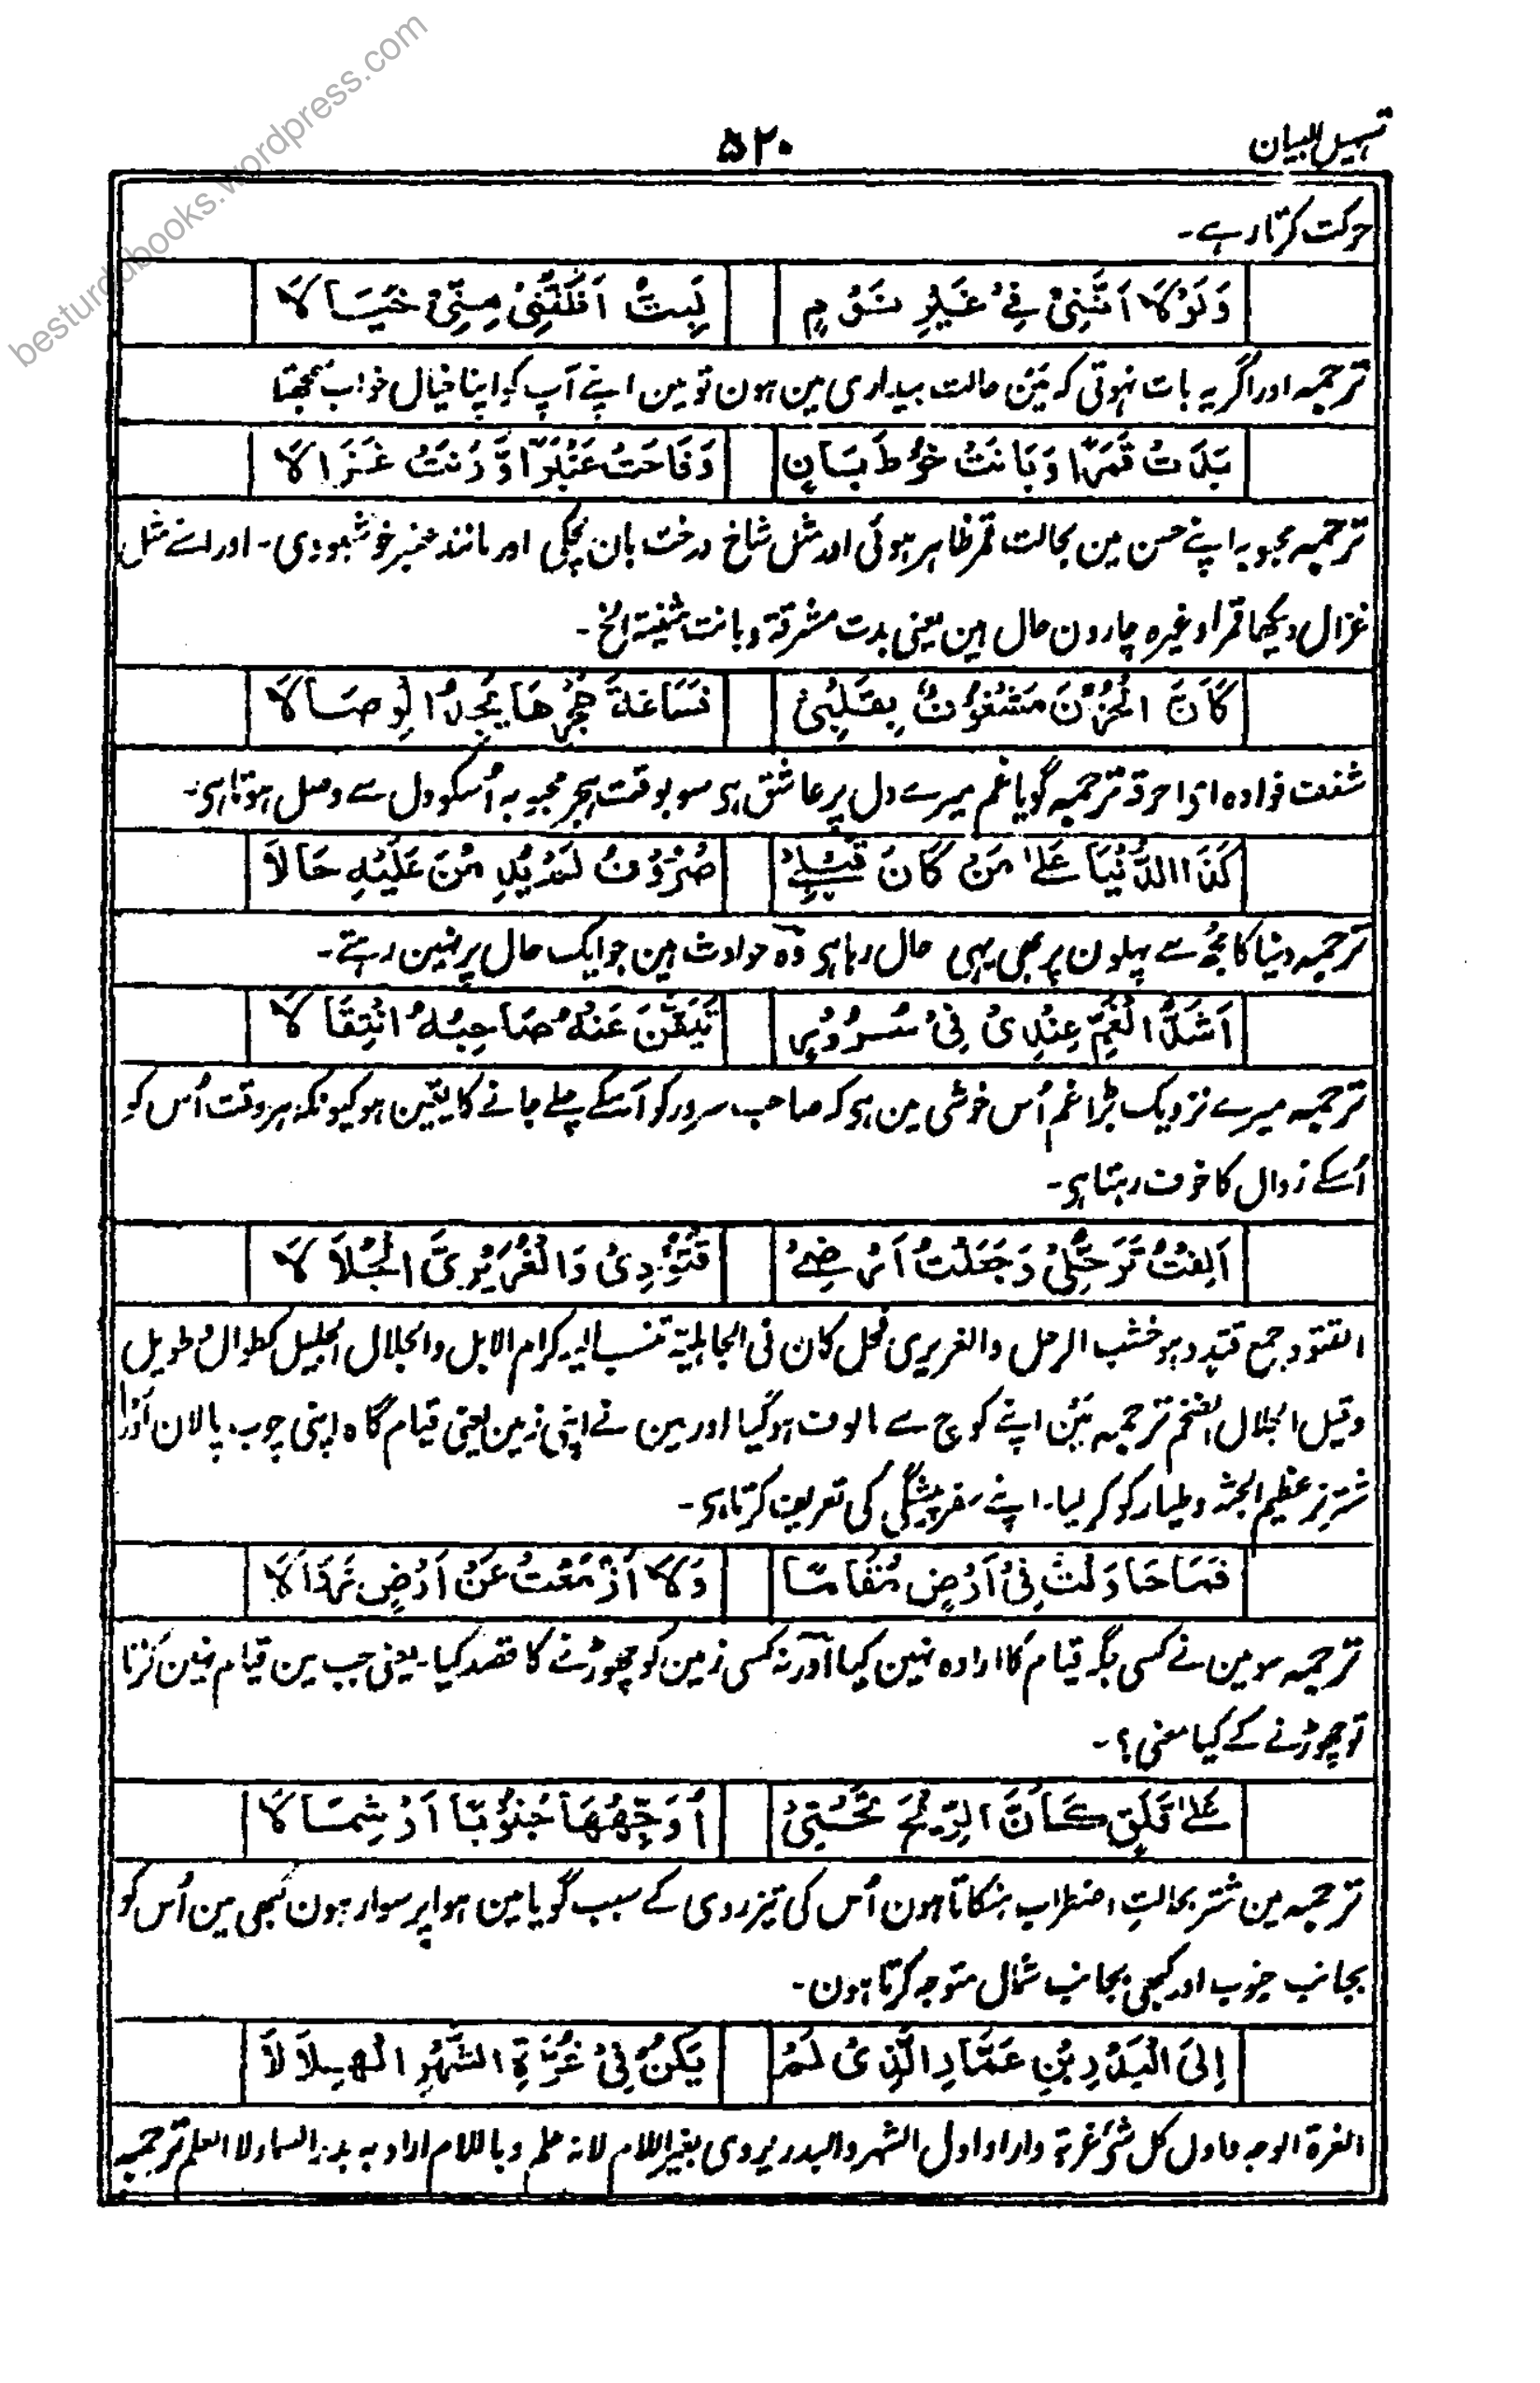 تسہیل البیان
۵۲۰
حرکت کرتا رہے۔
وَلَوْلَا اَنَّنِیْ فِیْ غَیْرِ نَوْمٍ لَبِتُّ اَظُنُّنِیْ مِنِّیْ خَیَالَا
ترجمہ اور اگر یہ بات نہوتی کہ مین حالت بیداری مین ہون تو مین اپنے آپ کو اپنا خیال خواب سمجھتا
بَدَتْ قَمَرًا وَبَانَتْ خُوْطَ بَانٍ وَفَاحَتْ عَنْبَرًا وَّرَنَتْ غَزَالَا
ترجمہ محبوبہ اپنے حسن مین بحالت قمر ظاہر ہوئی اور مثل شاخ درخت بان لچکی اور مانند عنبر خوشبو دی۔ اور اسنے مثل
غزال دیکھا قمرا وغیرہ چارون حال ہین یعنی بدت مشرقۃ وبانت مثنیۃ الخ۔
كَاَنَّ الْحُزْنَ مَشْغُوْفٌ بِقَلْبِیْ فَسَاعَةَ هَجْرِهَا یَجِدُ الْوِصَالَا
شغف فوادہ ای احرقہ ترجمہ گویا غم میرے دل پر عاشق ہی سو بوقت ہجر محبوبہ اُسکو دل سے وصل ہوتا ہی۔
كَذَا الدُّنْیَا عَلٰی مَنْ كَانَ قَبْلِیْ صُرُوْفٌ لَمْ یُدِمْنَ عَلَیْهِ حَالَا
ترجمہ دنیا کا مجھ سے پہلون پر بھی یہی حال رہا ہی وہ حوادث ہین جو ایک حال پر نہین رہتے۔
اَشَدُّ الْغَمِّ عِنْدِیْ فِیْ سُرُوْرٍ تَیَقَّنَ عَنْهُ صَاحِبُهُ انْتِقَالَا
ترجمہ میرے نزدیک بڑا غم اُس خوشی مین ہی کہ صاحب سرور کو اُسکے چلے جانے کا یقین ہو کیونکہ ہر وقت اُس کو
اُسکے زوال کا خوف رہتا ہی۔
اَلِفْتُ تَرَحُّلِیْ وَجَعَلْتُ اَرْضِیْ قُتُوْدِیْ وَالْغُرَیْرِیَّ الْجُلَالَا
القتود جمع قتد وہو خشب الرحل والغریری فحل کان فی الجاہلیۃ تنسب الیہ کرام الابل والجلال الجلیل کطوال وطویل
وقیل الجلال الضخم ترجمہ مین اپنے کوچ سے مالوف ہو گیا اور مین نے اپنی زمین یعنی قیام گاہ اپنی چوب پالان اور
شتر نر عظیم الجثہ وطیار کو کر لیا۔ اپنے سفر پیشگی کی تعریف کرتا ہی۔
فَمَا حَاوَلْتُ فِیْ اَرْضٍ مُقَامًا وَلَا اَزْمَعْتُ عَنْ اَرْضٍ زَوَالَا
ترجمہ سو مین نے کسی جگہ قیام کا ارادہ نہین کیا اور نہ کسی زمین کو چھوڑنے کا قصد کیا۔ یعنی جب مین قیام نہین کرتا
تو چھوڑنے کے کیا معنی؟۔
عَلٰی قَلَقٍ كَاَنَّ الرِّیْحَ تَحْتِیْ اُوَجِّهُهَا جَنُوْبًا اَوْ شِمَالَا
ترجمہ مین شتر بحالتِ اضطراب ہنکاتا ہون اُس کی تیز روی کے سبب گویا مین ہوا پر سوار ہون کبھی مین اُس کو
بجانب جنوب اور کبھی بجانب شمال متوجہ کرتا ہون۔
اِلَی الْبَدْرِ بْنِ عَمَّارِ الَّذِیْ لَمْ یَكُنْ فِیْ غُرَّةِ الشَّهْرِ الْهِلَالَا
الغرۃ الوجہ واول کل شئ غرتہ واراد اول الشہر والبدر یروی بغیر اللام لانہ علم وباللام اراد بہ بدر السماء لا العلم ترجمہ
besturdubooks.wordpress.com